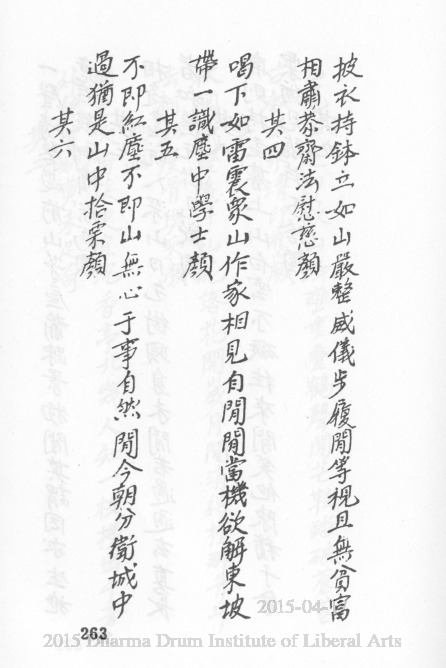 披衣持鉢立如山嚴整威儀步履閒等視且無貧富
相肅恭齋法慰慈顏
其四
喝下如雷震眾山作家相見自閒閒當機欲解東坡
帶一識塵中學士顏
其五
不即紅塵不即山無心于事自然閒今朝分衛城中
過猶是山中拾栗顏
其六
263
2015-04-
2015 Dharma Drum Institute of Liberal Arts